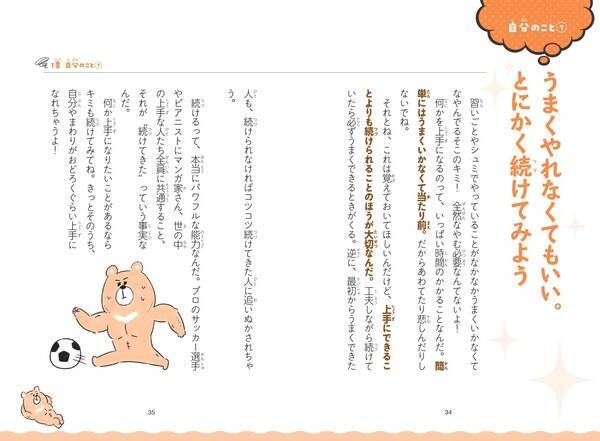 自分のこと⑦
うまくやれなくてもいい。
とにかく続けてみよう
習いごとやシュミでやっていることがなかなかうまくいかなくて
なやんでるそこのキミ！　全然なやむ必要なんてないよ！
何かを上手になるのって、いっぱい時間のかかることなんだ。簡
単にはうまくいかなくて当たり前。だからあわてたり悲しんだりし
ないでね。
それとね、これは覚えておいてほしいんだけど、上手にできるこ
とよりも続けられることのほうが大切なんだ。工夫しながら続けて
いたら必ずうまくできるときがくる。逆に、最初からうまくできた
34
1章 自分のこと⑦
人も、続けられなければコツコツ続けてきた人に追いぬかされちゃ
う。
続けるって、本当にパワフルな能力なんだ。プロのサッカー選手
やピアニストにマンガ家さん、世の中
の上手な人たち全員に共通すること、
それが“続けてきた”っていう事実な
んだ。
何か上手になりたいことがあるなら
キミも続けてみてね。きっとそのうち、
自分やまわりがおどろくぐらい上手に
なれちゃうよ！
35